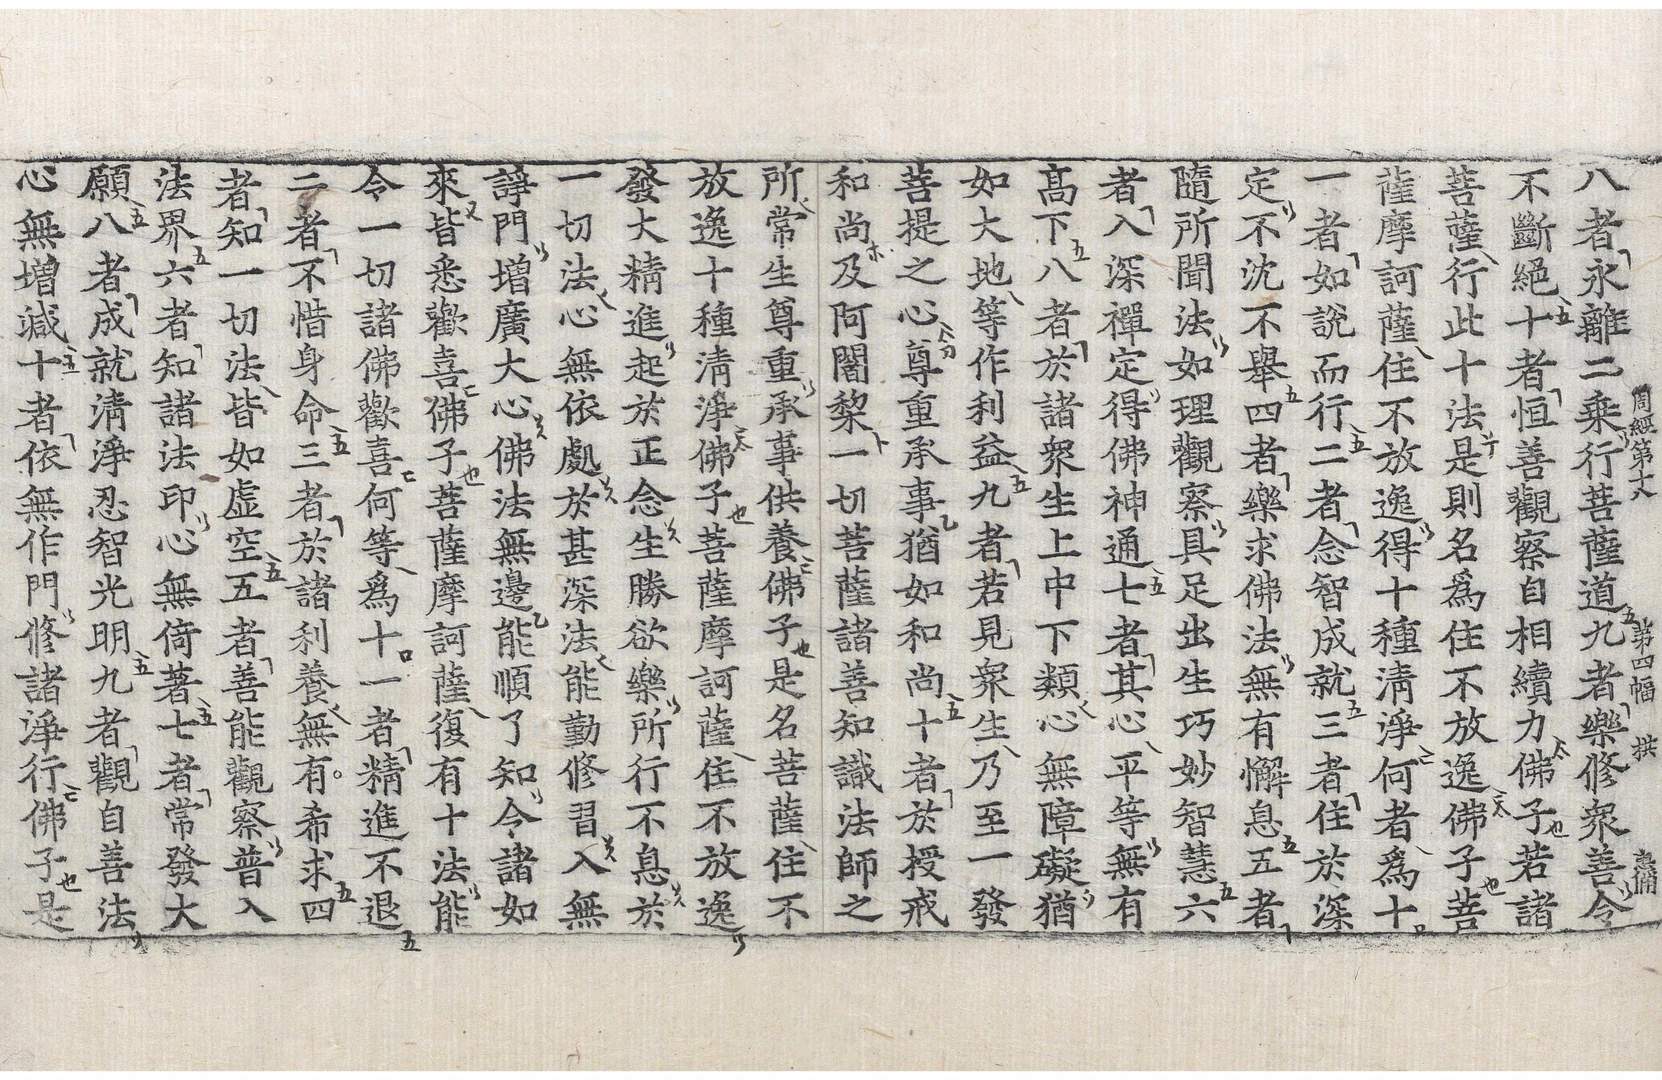 八者永離二乘行菩薩道九者樂修衆善令
周經第十八 第四幅 拱
不斷絕十者恒善觀察自相續力佛子若諸
菩薩行此十法是則名爲住不放逸佛子菩
薩摩訶薩住不放逸得十種清淨何者爲十
一者如說而行二者念智成就三者住於深
定不沈不舉四者樂求佛法無有懈息五者
隨所聞法如理觀察具足出生巧妙智慧六
者入深禪定得佛神通七者其心平等無有
高下八者於諸衆生上中下類心無障礙猶
如大地等作利益九者若見衆生乃至一發
菩提之心尊重承事猶如和尚十者於授戒
和尚及阿闍棃一切菩薩諸善知識法師之
所常生尊重承事供養佛子是名菩薩住不
放逸十種清淨佛子菩薩摩訶薩住不放逸
發大精進起於正念生勝欲樂所行不息於
一切法心無依處於甚深法能勤修習入無
諍門增廣大心佛法無邊能順了知令諸如
來皆悉歡喜佛子菩薩摩訶薩復有十法能
令一切諸佛歡喜何等爲十一者精進不退
二者不惜身命三者於諸利養無有希求四
者知一切法皆如虛空五者善能觀察普入
法界六者知諸法印心無倚著七者常發大
願八者成就清淨忍智光明九者觀自善法
心無增減十者依無作門修諸淨行佛子是